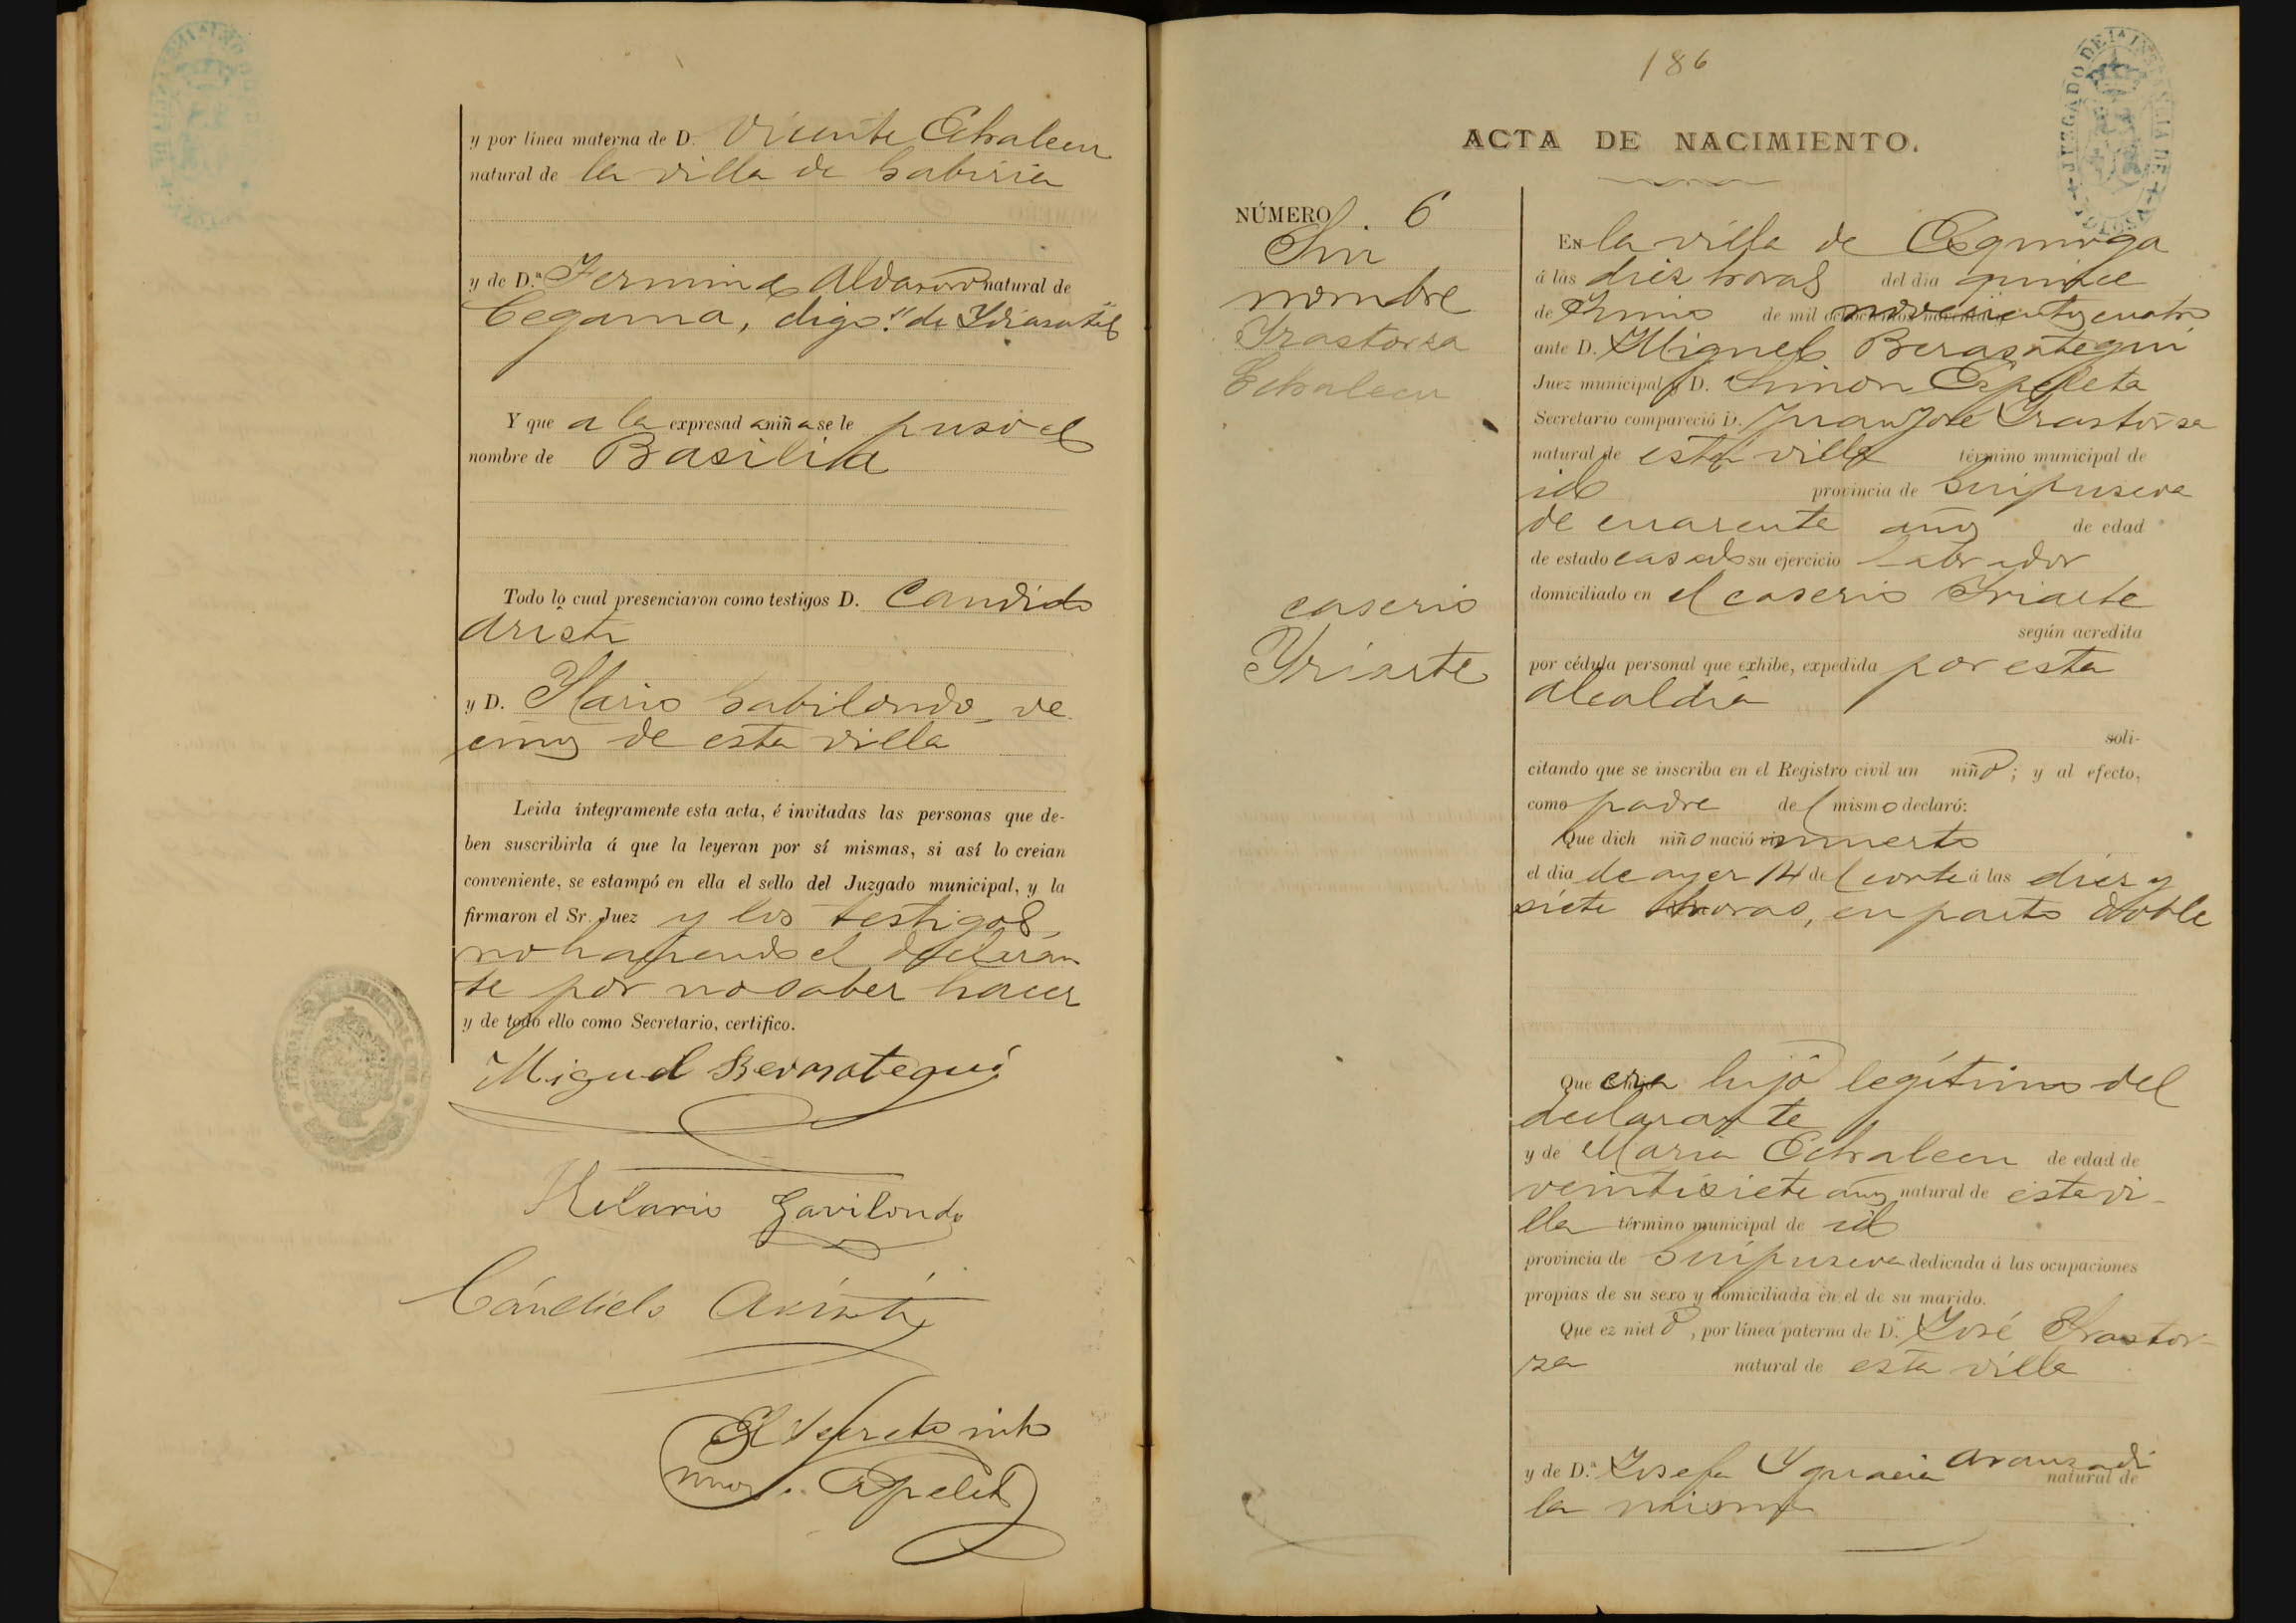 y por línea materna de D. Vicente Echalecu
natural de la villa de Gabiria
y de D.ª Fermina Aldasoro natural de
Cegama, digo: de Ydiasabal
Y que a la expresad a niñ a se le puso el
nombre de Basilia
Todo lo cual presenciaron como testigos D. Candido
Aristi
y D. Ylario Gabilondo, ve
cinos de esta villa
Leida íntegramente esta acta, é invitadas las personas que de-
ben suscribirla á que la leyeran por sí mismas, si así lo creian
conveniente, se estampó en ella el sello del Juzgado municipal, y la
firmaron el Sr. Juez y los testigos,
no haciendo el declaran
te por no saber hacer
y de todo ello como Secretario, certifico.
Miguel Berasategui
Hilario Gavilondo
Cándido Aristi
El Secretario
Espeleta
186
ACTA DE NACIMIENTO.
JUZGADO DE 1ª INSTANCIA DE TOLOSA
NÚMERO 6
Sin
nombre
Yrastorza
Echalecu
caserio
Yriarte
En la villa de Ezquioga
á las diez horas del dia quince
de Junio de mil novecientos cuatro
ante D. Miguel Berasategui
Juez municipal y D. Simon Espeleta
Secretario compareció D. Juan José Yrastorza
natural de esta villa término municipal de
id provincia de Guipuzcoa
de cuarenta años de edad
de estado casado su ejercicio labrador
domiciliado en el caserio Yriarte
según acredita
por cédula personal que exhibe, expedida por esta
Alcaldía
soli-
citando que se inscriba en el Registro civil un niño; y al efecto,
como padre del mismo declaró:
Que dich niño nació muerto
el dia de ayer 14 del corte á las diez y
siete horas, en parto doble
Que era hijo legítimo del
declarante
y de Maria Echalecu de edad de
veintisiete años natural de esta vi-
lla término municipal de id
provincia de Guipuzcoa dedicada á las ocupaciones
propias de su sexo y domiciliada en el de su marido.
Que ez niet o, por línea paterna de D. José Yrastor-
za natural de esta villa
y de D.ª Josefa Ygnacia Aranzadi natural de
la misma